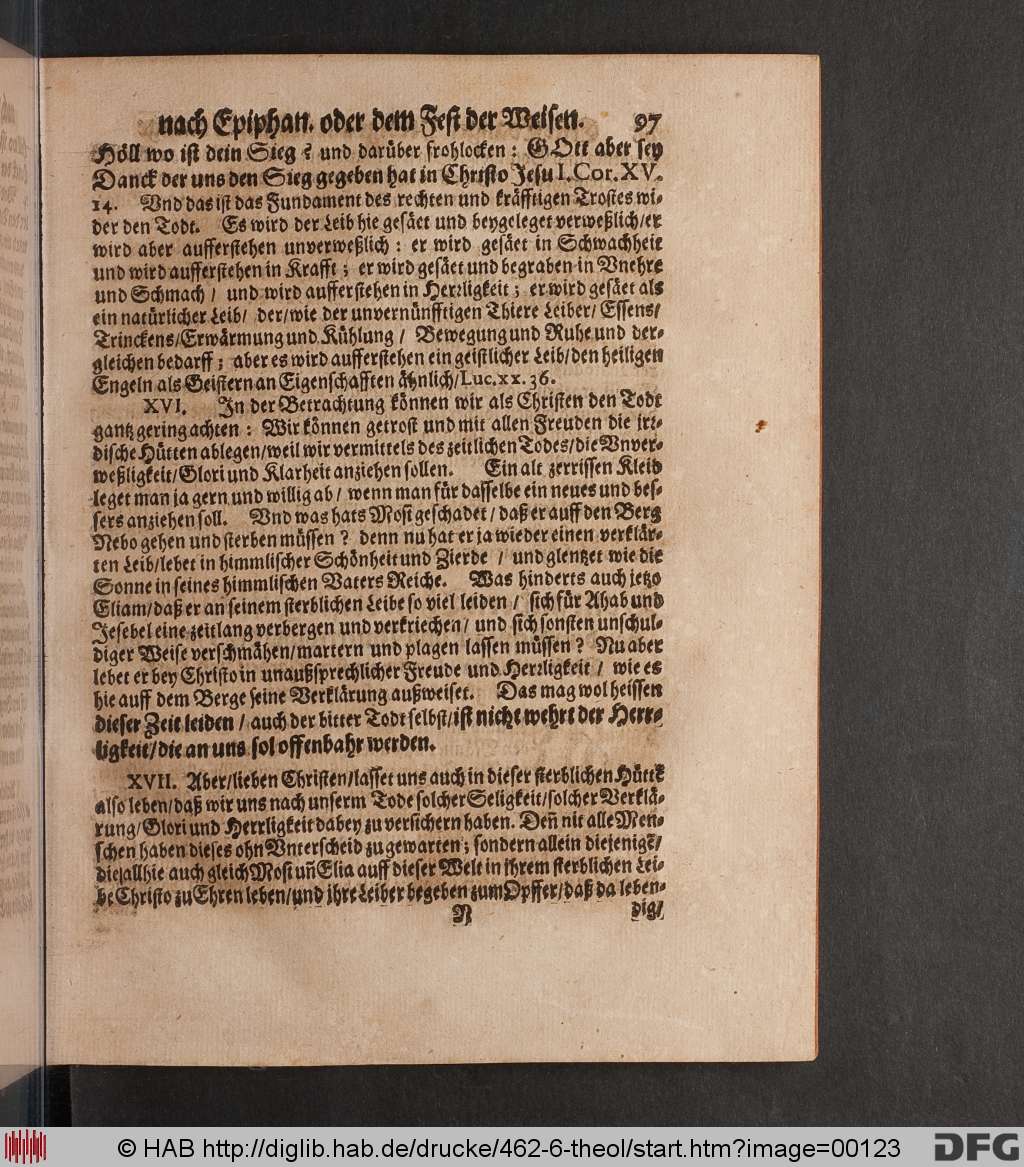 nach Epiphan. oder dem Fest der Weisen. 97
Höll wo ist dein Sieg? und darüber frohlocken: GOtt aber sey
Danck der uns den Sieg gegeben hat in Christo Jesu I. Cor. XV.
14. Vnd das ist das Fundament des rechten und kräfftigen Trostes wi-
der den Todt. Es wird der Leib hie gesäet und beygeleget verweßlich/er
wird aber aufferstehen unverweßlich: er wird gesäet in Schwachheit
und wird aufferstehen in Krafft; er wird gesäet und begraben in Vnehre
und Schmach / und wird aufferstehen in Herꝛligkeit; er wird gesäet als
ein natürlicher Leib/ der/wie der unvernünfftigen Thiere Leiber/ Essens/
Trinckens/Erwärmung und Kühlung / Bewegung und Ruhe und der-
gleichen bedarff; aber es wird aufferstehen ein geistlicher Leib/den heiligen
Engeln als Geistern an Eigenschafften ähnlich/Luc. xx. 36.
XVI. In der Betrachtung können wir als Christen den Todt
gantz gering achten: Wir können getrost und mit allen Freuden die irꝛ-
dische Hütten ablegen/weil wir vermittels des zeitlichen Todes/die Vnver-
weßligkeit/Glori und Klarheit anziehen sollen. Ein alt zerrissen Kleid
leget man ja gern und willig ab / wenn man für dasselbe ein neues und bes-
sers anziehen soll. Vnd was hats Mosi geschadet / daß er auff den Berg
Nebo gehen und sterben müssen? denn nu hat er ja wieder einen verklär-
ten Leib/lebet in himmlischer Schönheit und Zierde / und glentzet wie die
Sonne in seines himmlischen Vaters Reiche. Was hinderts auch jetzo
Eliam/daß er an seinem sterblichen Leibe so viel leiden / sich für Ahab und
Jesebel eine zeitlang verbergen und verkriechen/ und sich sonsten unschul-
diger Weise verschmähen/martern und plagen lassen müssen? Nu aber
lebet er bey Christo in unaußsprechlicher Freude und Herꝛligkeit / wie es
hie auff dem Berge seine Verklärung außweiset. Das mag wol heissen
dieser Zeit leiden / auch der bitter Todt selbst/ist nicht wehrt der Herꝛ-
ligkeit/die an uns sol offenbahr werden.
XVII. Aber/lieben Christen/lasset uns auch in dieser sterblichen Hütte
also leben/daß wir uns nach unserm Tode solcher Seligkeit/solcher Verklä-
rung/Glori und Herrligkeit dabey zu versichern haben. Deñ nit alle Men-
schen haben dieses ohn Vnterscheid zu gewarten; sondern allein diejenigẽ/
die/allhie auch gleich Mosi uñ Elia auff dieser Welt in ihrem sterblichen Lei-
be Christo zu Ehren leben/und ihre Leiber begeben zum Opffer/daß da leben-
N dig/
© HAB http://diglib.hab.de/drucke/462-6-theol/start.htm?image=00123 DFG